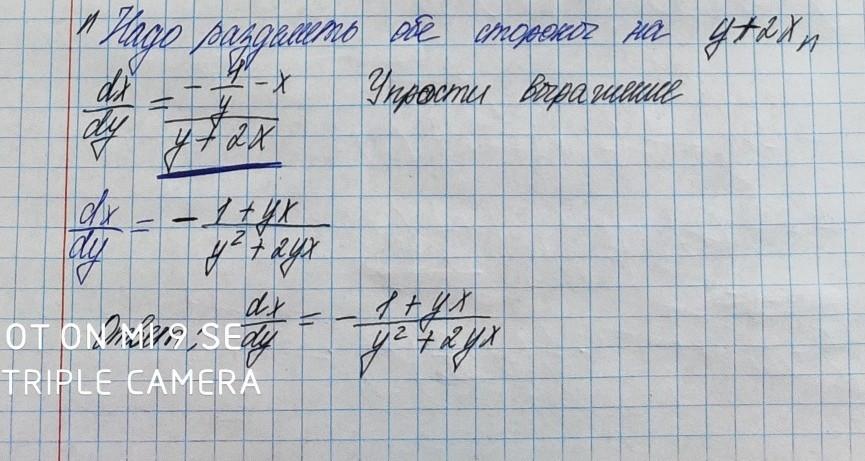 " Надо разделить обе стороны на y+2x "
dx/dy = (-1/y - x)/(y + 2x) Упрости выражение
dx/dy = - (1 + yx)/(y² + 2yx)
Ответ: dx/dy = - (1 + yx)/(y² + 2yx)
OT ON MI 9 SE
TRIPLE CAMERA